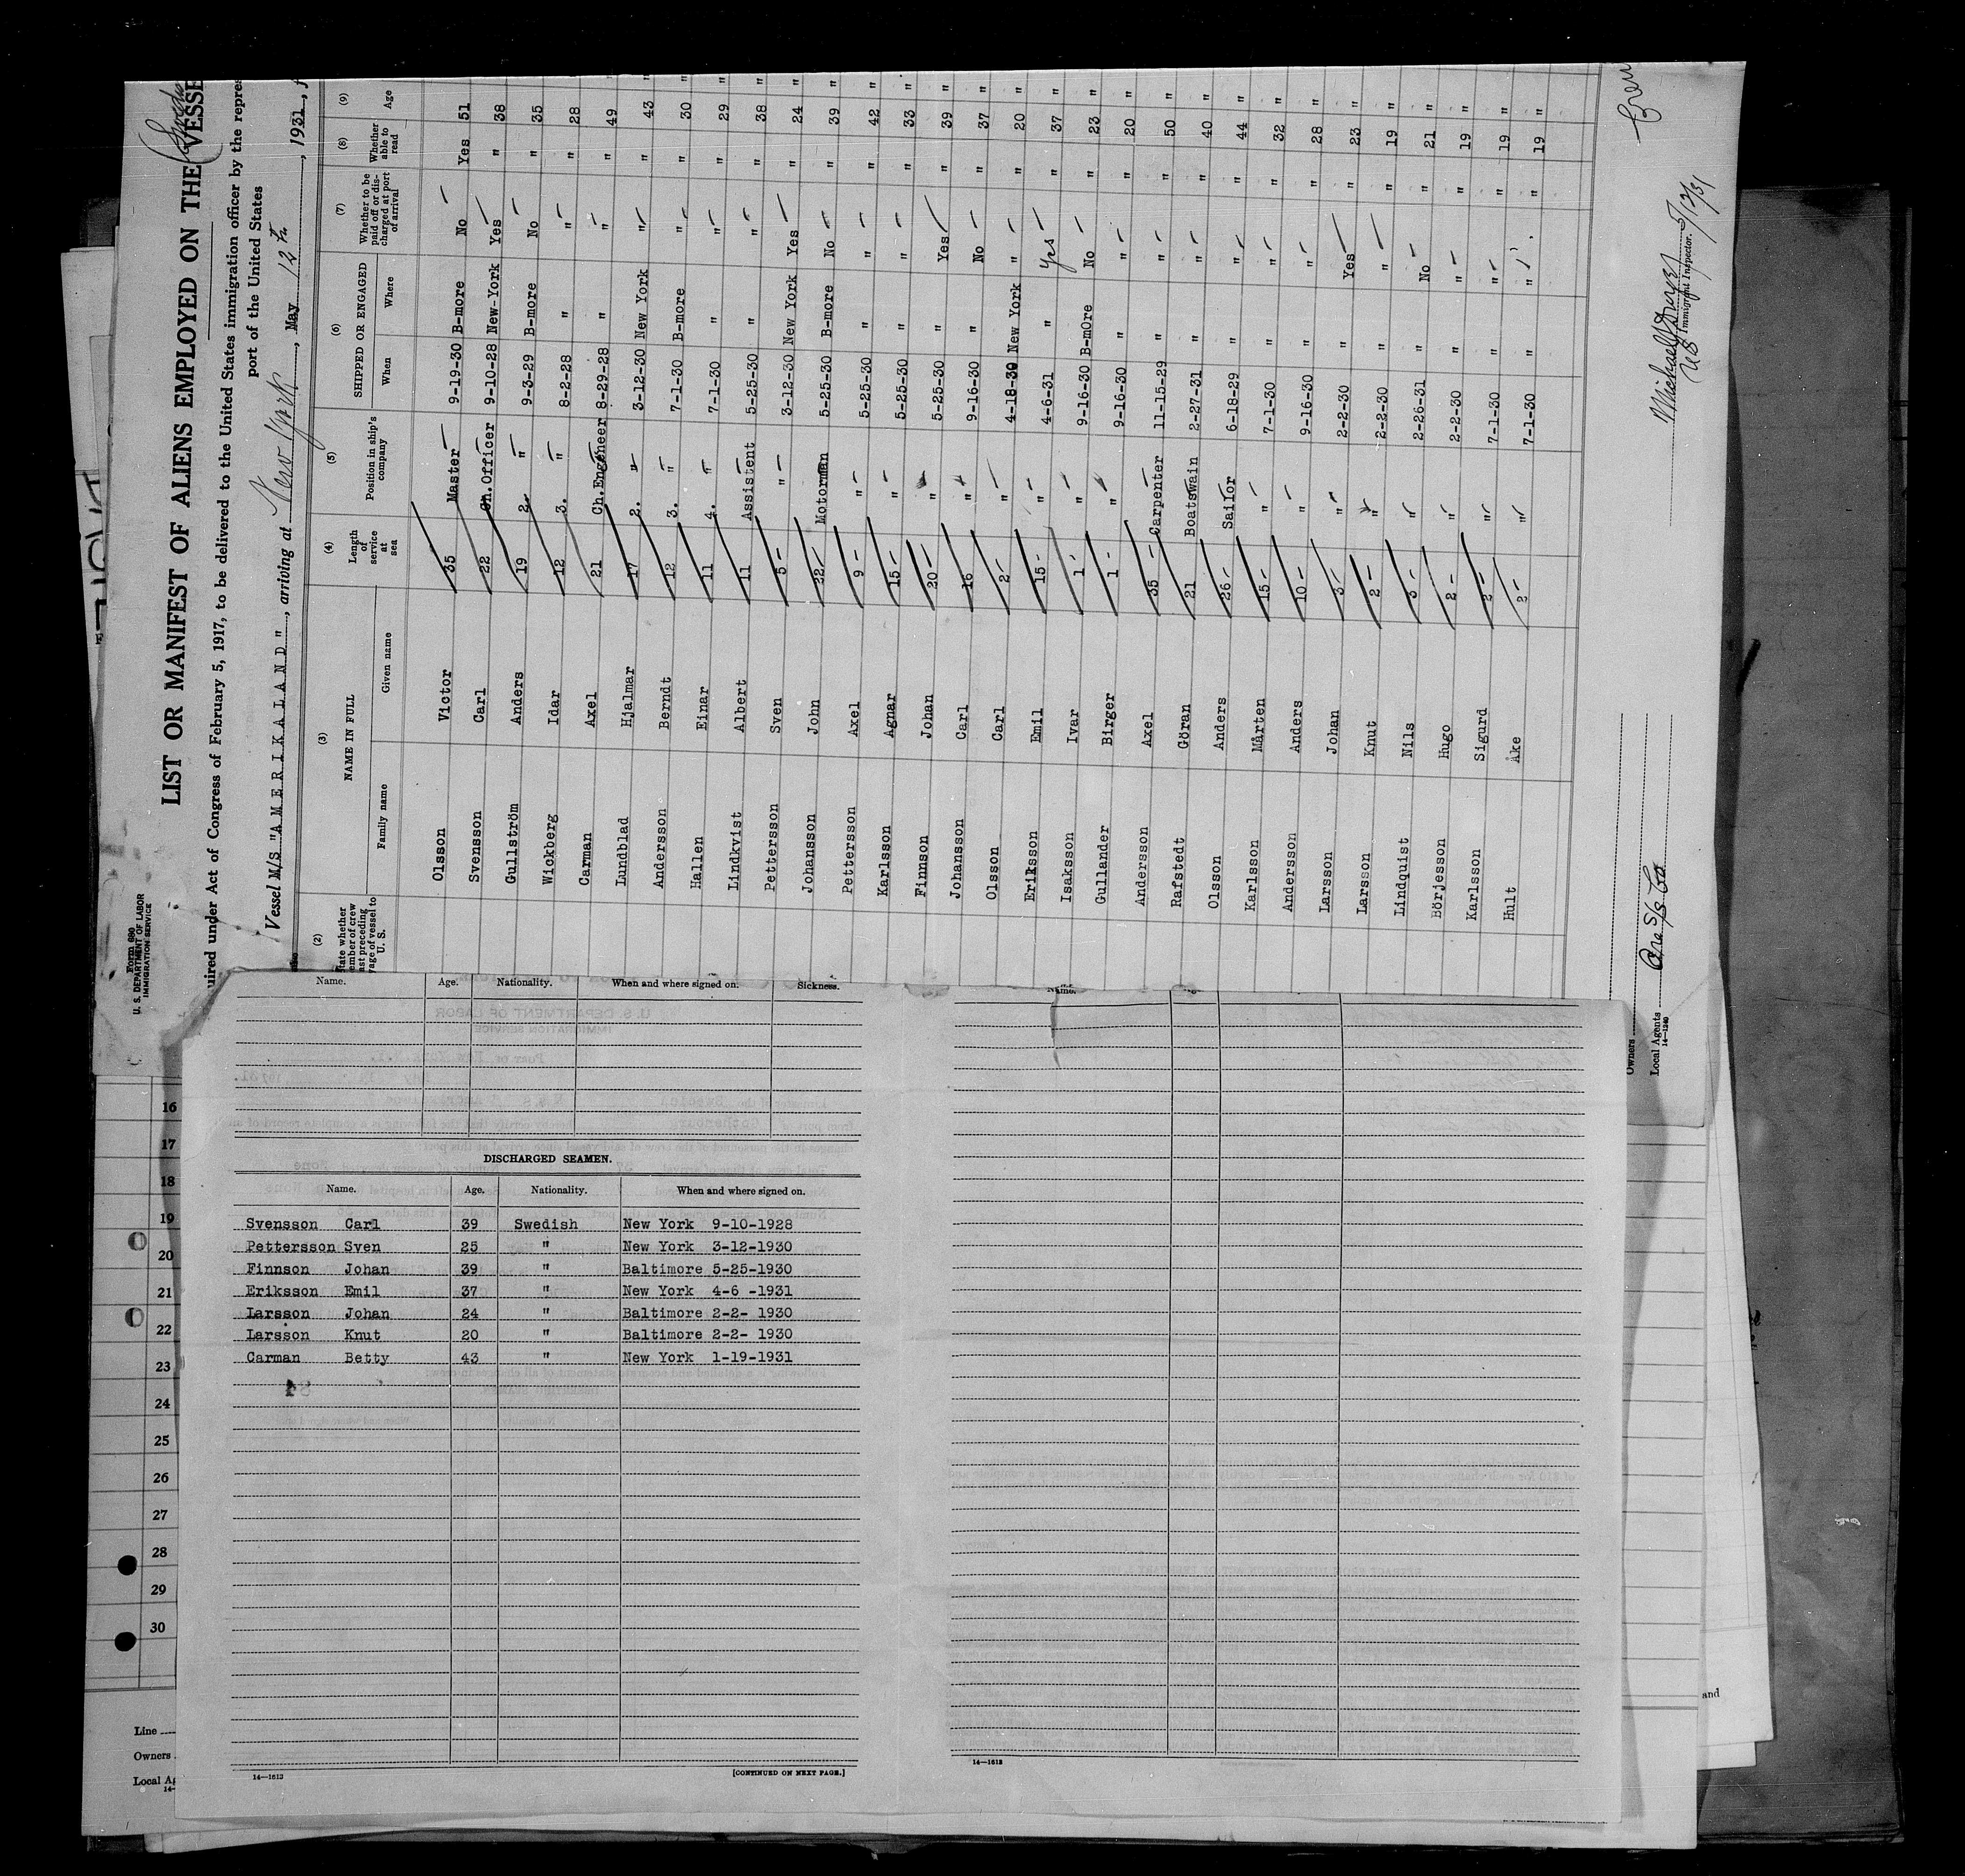 Form 680
U. S. DEPARTMENT OF LABOR
IMMIGRATION SERVICE
LIST OR MANIFEST OF ALIENS EMPLOYED ON THE VESSE
uired under Act of Congress of February 5, 1917, to be delivered to the United States immigration officer by the repres
port of the United States
Vessel M/S "AMERIKALAND", arriving at New York, May 12th, 1931, f
(2) (3) (4) (5) (6) (7) (8) (9)
NAME IN FULL
Family name Given name
Length of service at sea
Position in ship's company
SHIPPED OR ENGAGED
When Where
Whether to be paid off or discharged at port of arrival
Whether able to read
Age
Olsson Victor 35 Master 9-19-30 B-more No Yes 51
Svensson Carl 22 Ch.Officer 9-10-28 New-York Yes " 38
Gullström Anders 19 2. " 9-3-29 B-more No " 35
Wickberg Idar 12 3. " 8-2-28 " " " 28
Carman Axel 21 Ch.Engeneer 8-29-28 " " " 49
Lundblad Hjalmar 17 2. " 3-12-30 New York " " 43
Andersson Berndt 12 3. " 7-1-30 B-more " " 30
Hallen Einar 11 4. " 7-1-30 " " " 29
Lindkvist Albert 11 Assistent 5-25-30 " " " 38
Pettersson Sven 5 " 3-12-30 New York Yes " 24
Johansson John 22 Motorman 5-25-30 B-more No " 39
Pettersson Axel 9 " 5-25-30 " " " 42
Karlsson Agnar 15 " 5-25-30 " " " 33
Finnson Johan 20 " 5-25-30 " Yes " 39
Johansson Carl 16 " 9-16-30 " No " 37
Olsson Carl 2 " 4-18-30 New York " " 20
Eriksson Emil 15 " 4-6-31 " Yes " 37
Isaksson Ivar 1 " 9-16-30 B-mOre No " 23
Gullander Birger 1 " 9-16-30 " " " 20
Andersson Axel 35 Carpenter 11-15-29 " " " 50
Rafstedt Göran 21 Boatswain 2-27-31 " " " 40
Olsson Anders 26 Sailor 6-18-29 " " " 44
Karlsson Mårten 15 " 7-1-30 " " " 32
Andersson Anders 10 " 9-16-30 " " " 28
Larsson Johan 3 " 2-2-30 " Yes " 23
Larsson Knut 2 " 2-2-30 " " " 19
Lindquist Nils 3 " 2-26-31 " No " 21
Börjesson Hugo 2 " 2-2-30 " " " 19
Karlsson Sigurd 2 " 7-1-30 " " " 19
Hult Åke 2 " 7-1-30 " " " 19
5/13/31
Immigrant Inspector.
Owners
Local Agents
14—1240
Name. Age. Nationality. When and where signed on. Sickness.
DISCHARGED SEAMEN.
Name. Age. Nationality. When and where signed on.
Svensson Carl 39 Swedish New York 9-10-1928
Pettersson Sven 25 " New York 3-12-1930
Finnson Johan 39 " Baltimore 5-25-1930
Eriksson Emil 37 " New York 4-6 -1931
Larsson Johan 24 " Baltimore 2-2- 1930
Larsson Knut 20 " Baltimore 2-2- 1930
Carman Betty 43 " New York 1-19-1931
14—1613
[CONTINUED ON NEXT PAGE.]
14—1613
16
17
18
19
20
21
22
23
24
25
26
27
28
29
30
Line
Owners
and